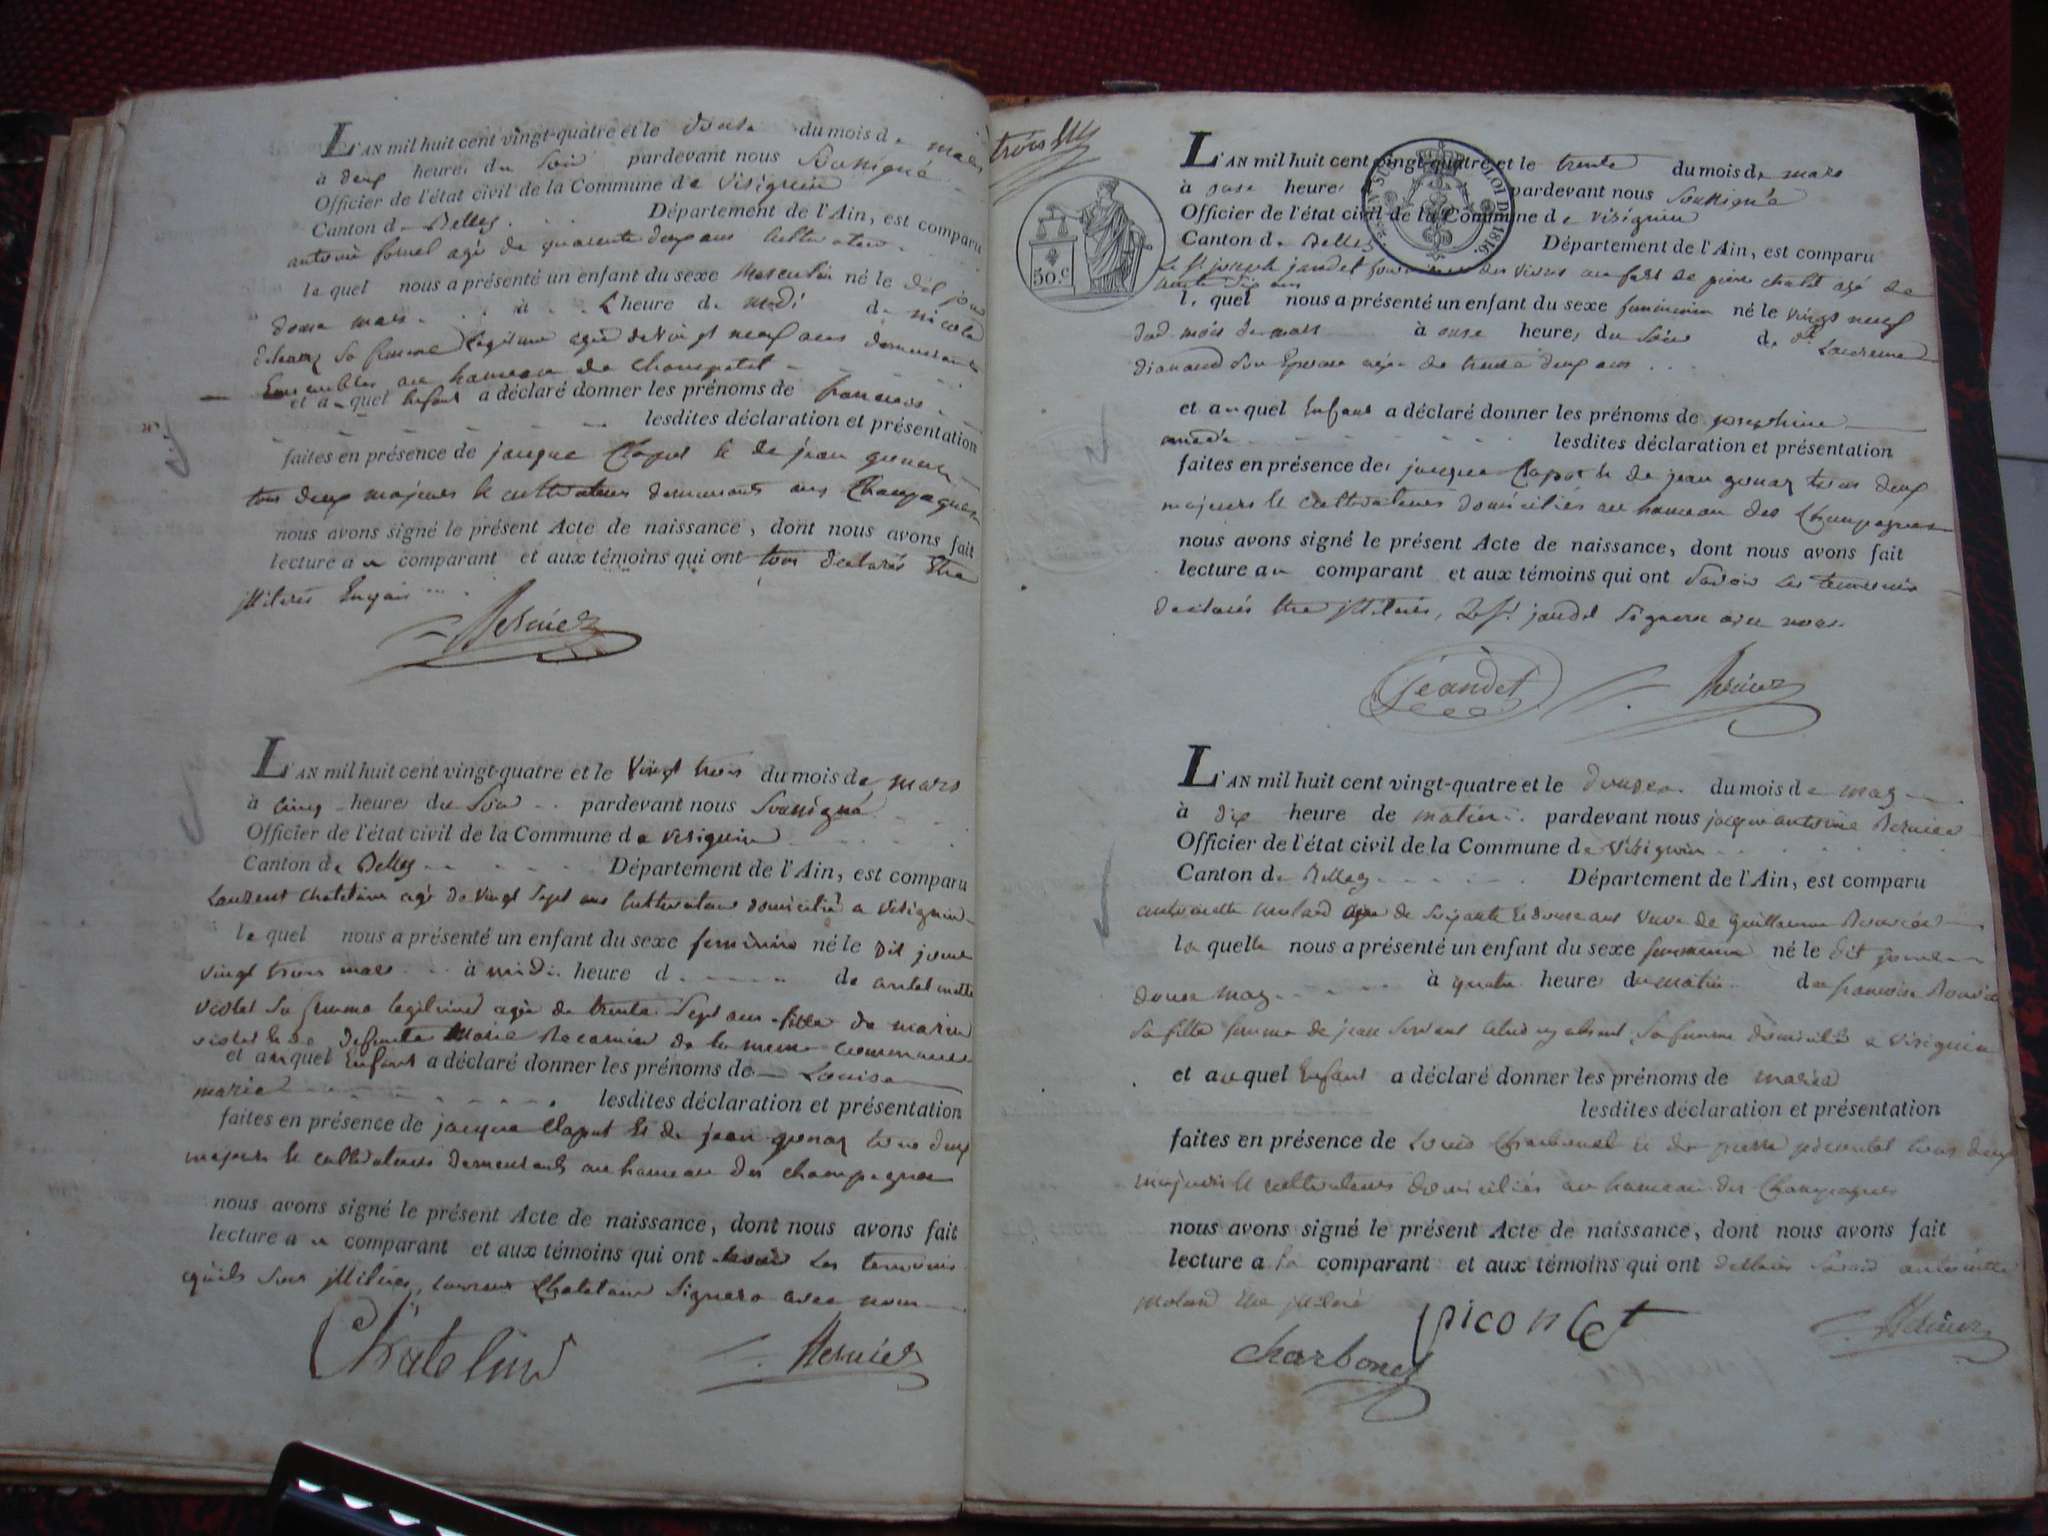 L'AN mil huit cent vingt-quatre et le douze du mois de mars
à deux heures du Soir pardevant nous Soussigné
Officier de l'état civil de la Commune de Virignin
Canton de Belley Département de l'Ain, est comparu
antoine agé de quarante deux ans cultivateur
le quel nous a présenté un enfant du sexe Masculin né le dit jour
douze mars à l'heure de midi de nicole
sa femme légitime agée de vingt neuf ans demeurants
Ensembles au hameau de
et au quel Enfant a déclaré donner les prénoms de francois
lesdites déclaration et présentation
faites en présence de jacque Claput & de jean
tous deux majeurs & cultivateurs demeurants aux Champagnes
nous avons signé le présent Acte de naissance, dont nous avons fait
lecture au comparant et aux témoins qui ont tous déclarés Etre
illiteres Enquis
L'AN mil huit cent vingt-quatre et le Vingt trois du mois de mars
à Cinq heures du Soir pardevant nous Soussigné
Officier de l'état civil de la Commune de Virignin
Canton de Belley Département de l'Ain, est comparu
Laurent Chatelain agé de vingt Sept ans Cultivateur domicilié a Virignin
le quel nous a présenté un enfant du sexe feminin né le dit jour
vingt trois mars à midi heure d de antoinette
violet Sa femme legitime agée de trente Sept ans fille de marin
violet & de defunte Marie Recamier de la meme commune
et au quel Enfant a déclaré donner les prénoms de Louise
marie lesdites déclaration et présentation
faites en présence de jacque Claput & de jean tous deux
majeurs & cultivateurs demeurants au hameau des champagnes
nous avons signé le présent Acte de naissance, dont nous avons fait
lecture au comparant et aux témoins qui ont les temoins
qu'ils sont illiteres, Laurent Chatelain Signera avec nous
Chatelain
trois
50.c
LOI DE 1816.
L'AN mil huit cent vingt-quatre et le trente du mois de mars
à onze heures pardevant nous Soussigné
Officier de l'état civil de la Commune de Virignin
Canton de Belley Département de l'Ain, est comparu
Le Sr. joseph jandet fournisseur des vivres au fort de pierre chatel agé de
trente ans
le quel nous a présenté un enfant du sexe feminin né le vingt neuf
dud. mois de mars à onze heures du Soir de
Son Epouse agée de trente deux ans
et au quel Enfant a déclaré donner les prénoms de josephine
lesdites déclaration et présentation
faites en présence des jacque Claput & de jean tous deux
majeurs & cultivateurs domiciliés au hameau des Champagnes
nous avons signé le présent Acte de naissance, dont nous avons fait
lecture au comparant et aux témoins qui ont Savoir les temoins
déclarés Etre illiteres, Le Sr. jandet Signera avec nous
jeandet
L'AN mil huit cent vingt-quatre et le douze du mois de may
à dix heure de matin pardevant nous jacque antoine
Officier de l'état civil de la Commune de Virignin
Canton de Belley Département de l'Ain, est comparu
antoinette molard agée de Soixante & douze ans veuve de guillaume
la quelle nous a présenté un enfant du sexe feminin né le dit jour
douze may à quatre heures du matin de francoise
Sa fille femme de jean absent, Sa femme domiciliée a Virignin
et au quel Enfant a déclaré donner les prénoms de maria
lesdites déclaration et présentation
faites en présence de Louis Charbonet & de pierre piconlet tous deux
majeurs & cultivateurs domiciliés au hameau des Champagnes
nous avons signé le présent Acte de naissance, dont nous avons fait
lecture a la comparant et aux témoins qui ont antoinette
molard Etre illiteré
piconlet
charbonet